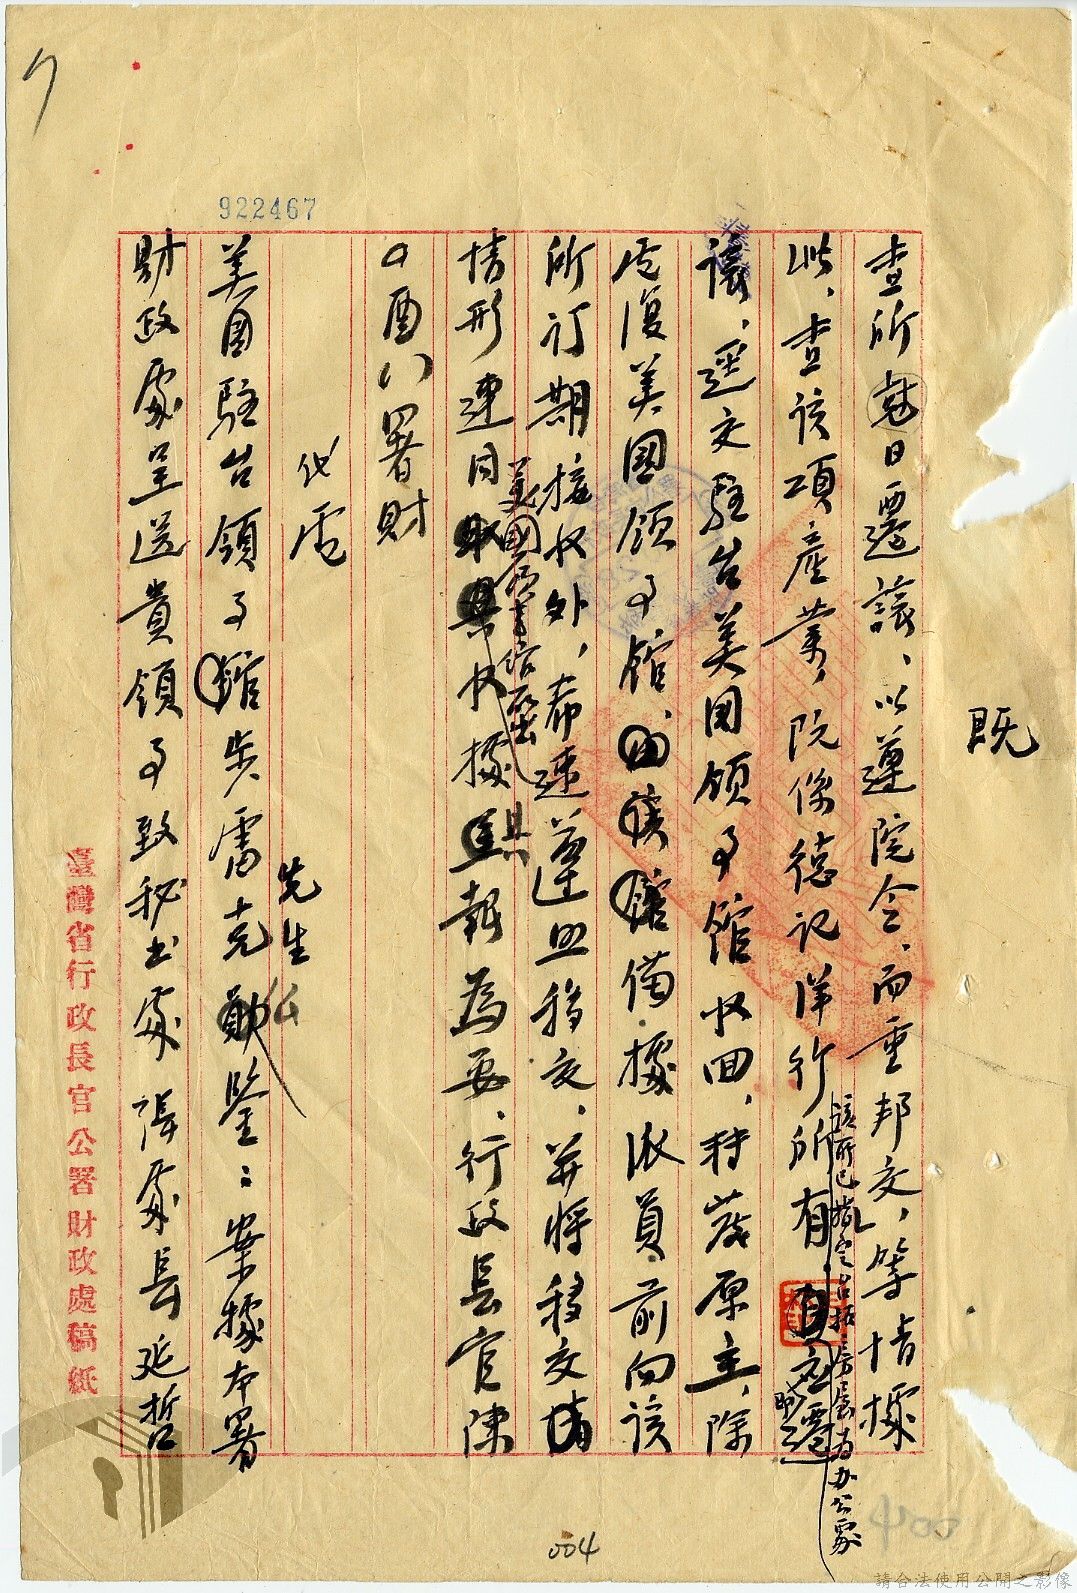 922467
既
查所尅日遷讓、以遵院令、而重邦交、等情據
此、查該項產業、既係德記洋行所有、應遷
該所已撥定台拓房屋為办公處
讓、逕交駐台美国領事館收回、轉發原主、除
電復美国領事館、備據派員前向該
所訂期接收外、希速遵照移交、並將移交
情形連同收據具報為要、行政長官陳
美國領事館
酉 署財
代電
美国駐台領事館步雷克先生勛鑒：案據本署
財政處呈送貴領事致秘書處張處長延哲
臺灣省行政長官公署財政處稿紙
004
400
請合法使用公開之影像